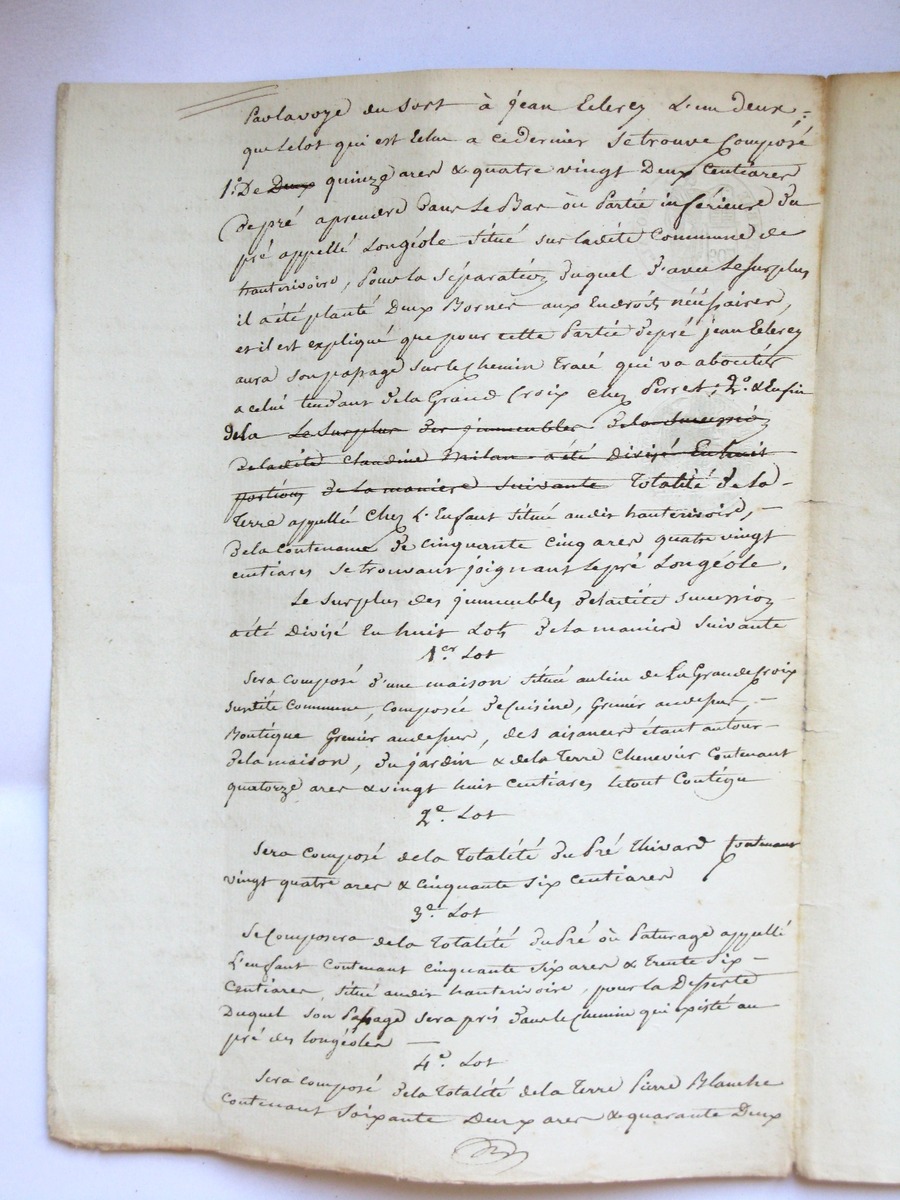 Par la voye du sort à jean Eclercy L'un Deux ;
que Le lot qui est Echu a ce dernier se trouve Composé
1.° De Deux quinze ares & quatre vingt Deux Centiares
De pré a prendre Dans Le Bas où Partie inférieure Du
pré appellé Longéole Situé sur ladite Commune de
hauterivoire, Pour la Séparation Duquel D'avec Le surplus
il a été planté Deux Bornes aux Endroits néçéssaires,
et il est expliqué que pour cette Partie De pré jean Eclercy
aura son passage sur le chemin Tracé qui va aboutir
a celui tendant De la Grand Croix chez Perret ; 2.° & Enfin
De la Le Surplus Des jmmeubles De la Succession
De ladite Claudine Milan a été Divisé En huit
portions De la maniere Suivante Totalité De la
Terre appellé chez L'Enfant Situé audit hauterivoire,
De la Contenance De cinquante cinq ares quatre vingt
centiares se trouvant joignant Le pré Longéole.
Le Surplus des jmmeubles De ladite Succession
a été Divisé En huit Lots De la maniere Suivante
1.er Lot
Sera composé D'une maison Situé au lieu de La Grande Croix
Susdite Commune, Composée De Cuisine, Grenier au dessus,
Boutique Grenier au dessus, des aisances étant autour
De la maison, Du jardin & de la Terre Chenevier Contenant
quatorze ares & vingt huit Centiares le tout Contigu
2.e Lot
Sera composé de la Totalité Du Pré Thivard Contenant
vingt quatre ares & Cinquante Six centiares
3.e Lot
Se Composera de la Totalité Du Pré où Paturage appellé
L'enfant Contenant cinquante Six ares & Trente Six
Centiares, Situé audit hauterivoire, pour la Desserte
Duquel Son Passage sera pris Dans le Chemin qui existe au
pré des longéoles
4.e Lot
Sera composé De la Totalité de la Terre Pierre Blanche
Contenant Soixante Deux ares & quarante Deux